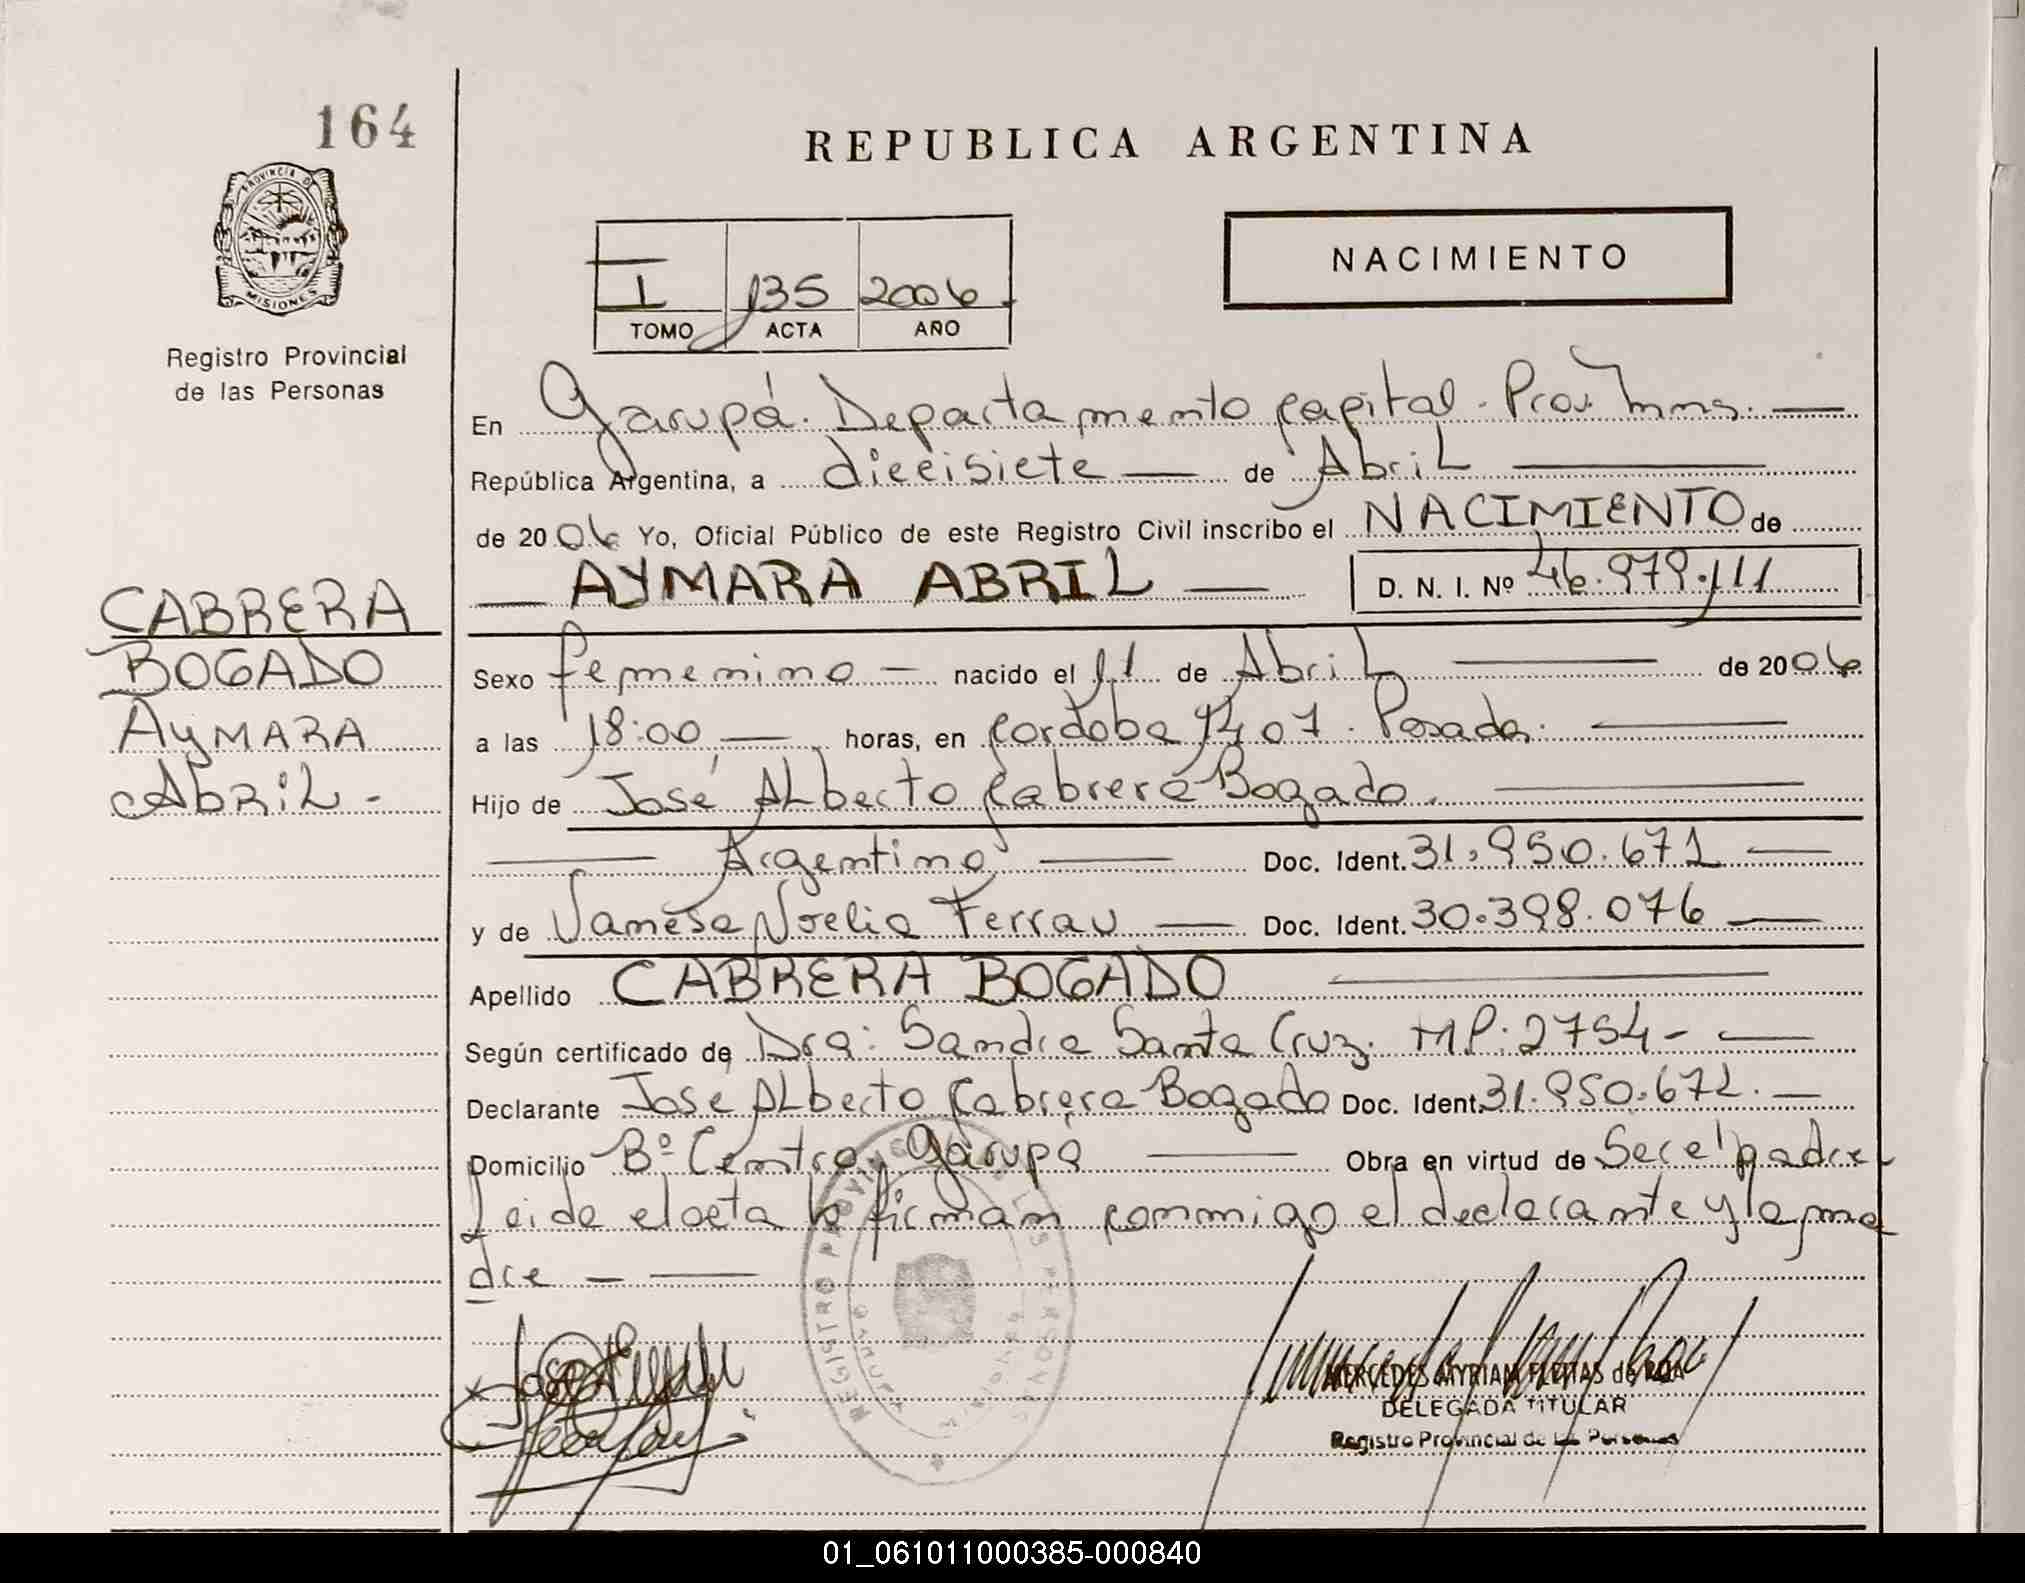 164
REPUBLICA ARGENTINA
PROVINCIA DE
MISIONES
Registro Provincial
de las Personas
I 135 2006
TOMO ACTA AÑO
NACIMIENTO
En Garupá. Departamento Capital. Prov. Mnes.
República Argentina, a diecisiete de Abril
de 2006 Yo, Oficial Público de este Registro Civil inscribo el NACIMIENTO de
AYMARA ABRIL D. N. I. Nº 46.979.111
CABRERA
BOGADO
AYMARA
ABRIL -
Sexo femenino nacido el 11 de Abril de 2006
a las 18:00 horas, en Cordoba 1407. Posadas.
Hijo de José Alberto Cabrera Bogado.
Argentino Doc. Ident. 31.950.671
y de Vanesa Noelia Ferrau Doc. Ident. 30.398.076
Apellido CABRERA BOGADO
Según certificado de Dra: Sandra Santa Cruz. M.P: 2754-
Declarante José Alberto Cabrera Bogado Doc. Ident. 31.950.671.
Domicilio Bº Centro, Garupá Obra en virtud de Ser el padre
Leida el acta la firman conmigo el declarante y la ma
dre
REGISTRO PROVINCIAL DE LAS PERSONAS
MERCEDES MYRIAM FLEITAS de ROA
DELEGADA TITULAR
Registro Provincial de las Personas
01_061011000385-000840